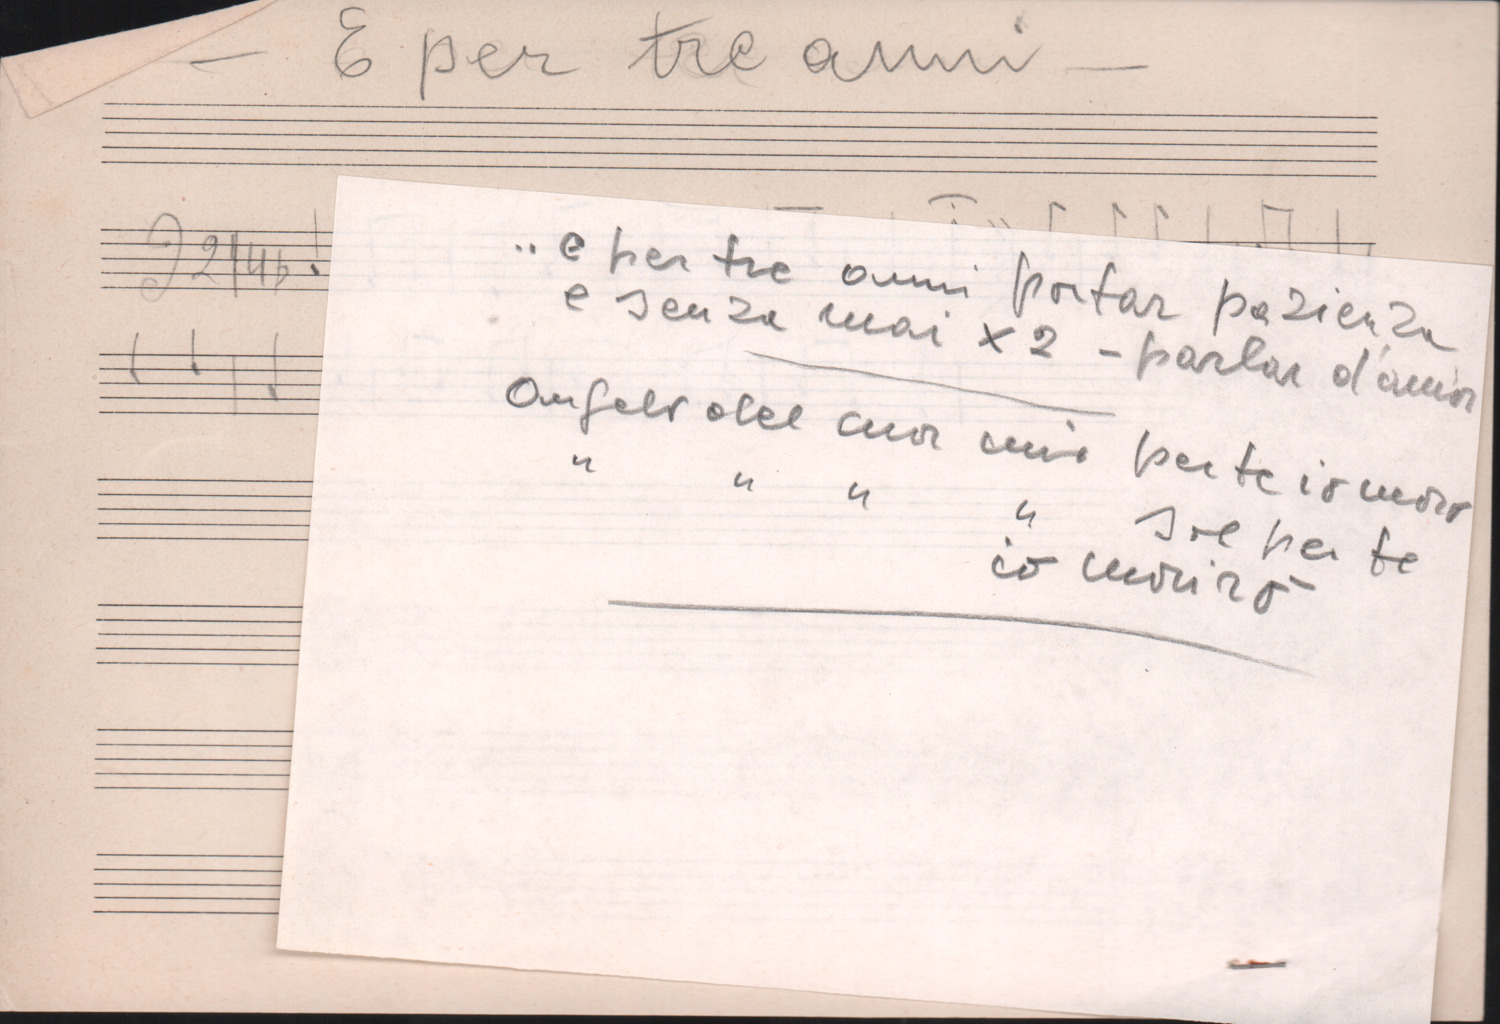 — E per tre anni —
„ e per tre anni portar pazienza
e senza mai x 2 - parlar d'amor
Angelo del cuor mio per te io moro
" " " " sol per te
io morirò